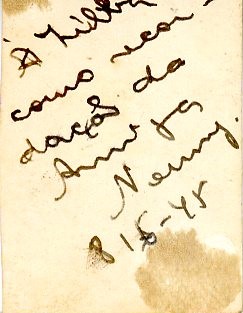 À Zilba
como recor-
dação da
Amiga
Nenny.
8 15-48